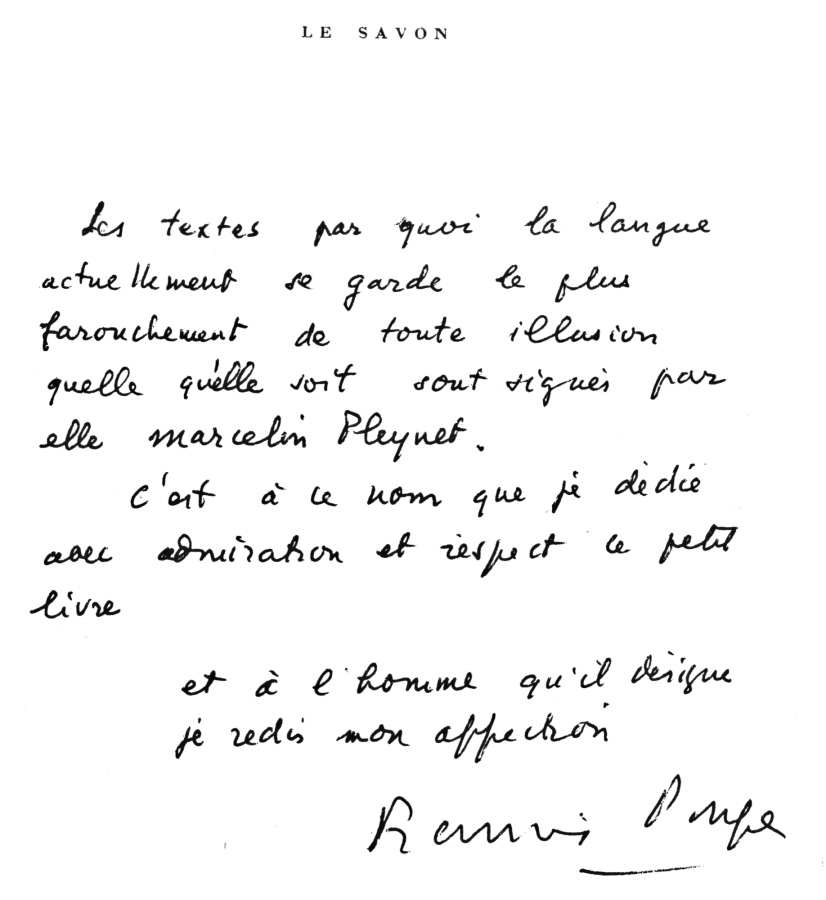 LE SAVON
Les textes par quoi la langue
actuellement se garde le plus
farouchement de toute illusion
quelle qu'elle soit sont signés par
elle Marcelin Pleynet.
C'est à ce nom que je dédie
avec admiration et respect ce petit
livre
et à l'homme qu'il désigne
je redis mon affection
Francis Ponge